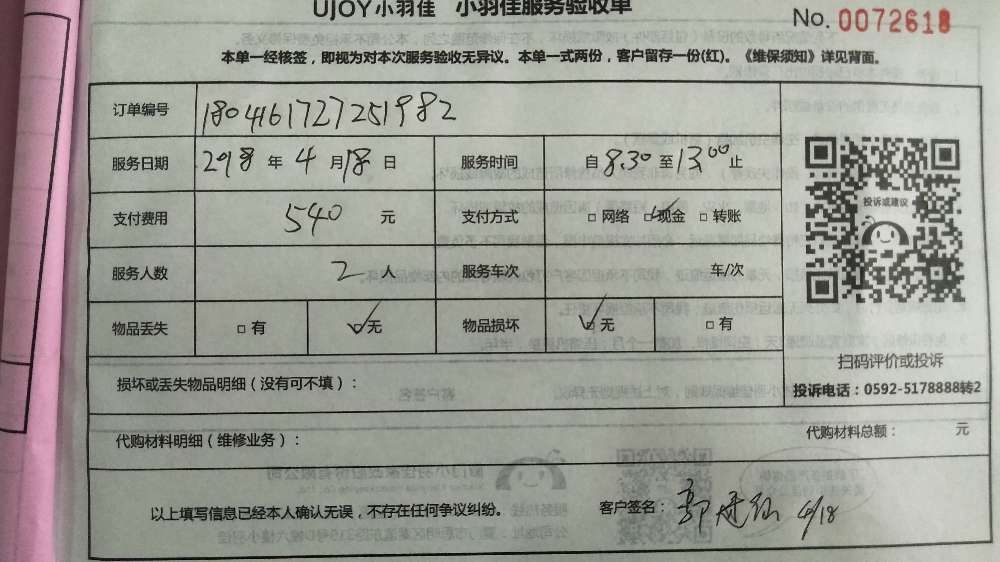 UJOY小羽佳 小羽佳服务验收单
No. 0072618
本单一经核签，即视为对本次服务验收无异议。本单一式两份，客户留存一份(红)。《维保须知》详见背面。
订单编号 1804161727251982
服务日期 2018 年 4 月 18 日 服务时间 自 8:30 至 13:00 止
支付费用 540 元 支付方式 □ 网络 ☑ 现金 □ 转账
投诉或建议
服务人数 2 人 服务车次 车/次
物品丢失 □ 有 ☑ 无 物品损坏 ☑ 无 □ 有
扫码评价或投诉
损坏或丢失物品明细（没有可不填）：
投诉电话：0592-5178888转2
代购材料明细（维修业务）：
代购材料总额： 元
以上填写信息已经本人确认无误，不存在任何争议纠纷。 客户签名： 郭 4/18